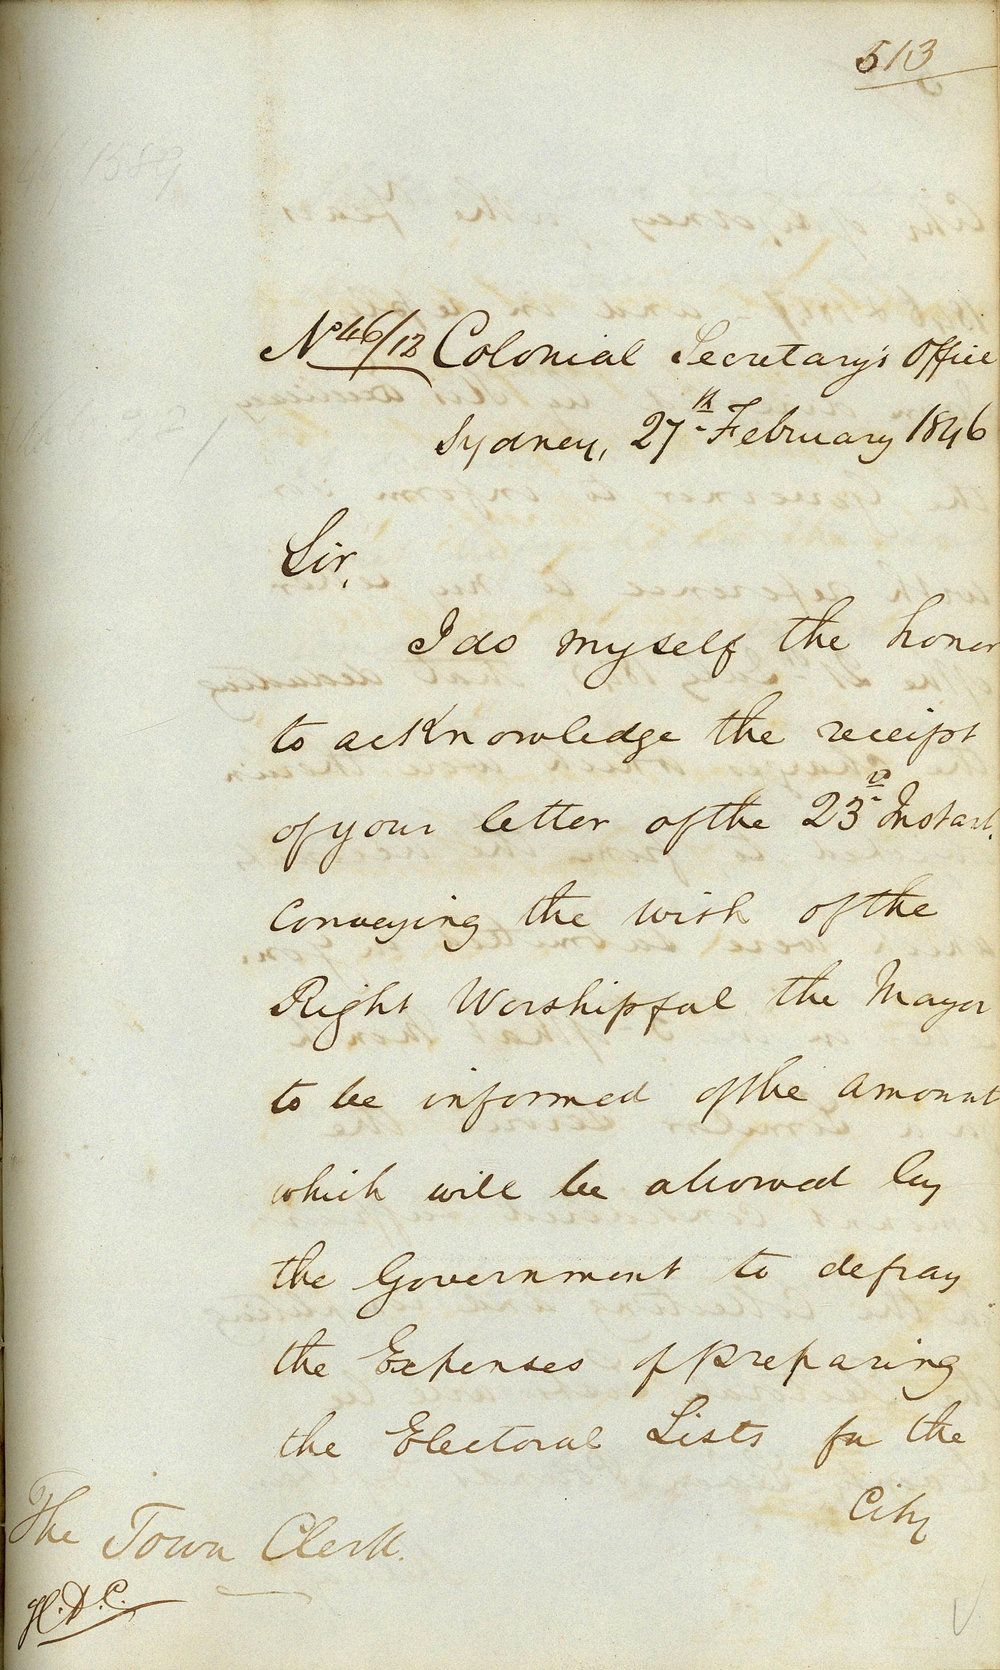 513
No 46/12 Colonial Secretary's Office
Sydney, 27th February 1846
Sir,
I do myself the honor
to acknowledge the receipt
of your letter of the 23rd Instant,
conveying the wish of the
Right Worshipful the Mayor
to be informed of the amount
which will be allowed by
the Government to defray
the Expenses of preparing
the Electoral Lists for the
City
The Town Clerk.